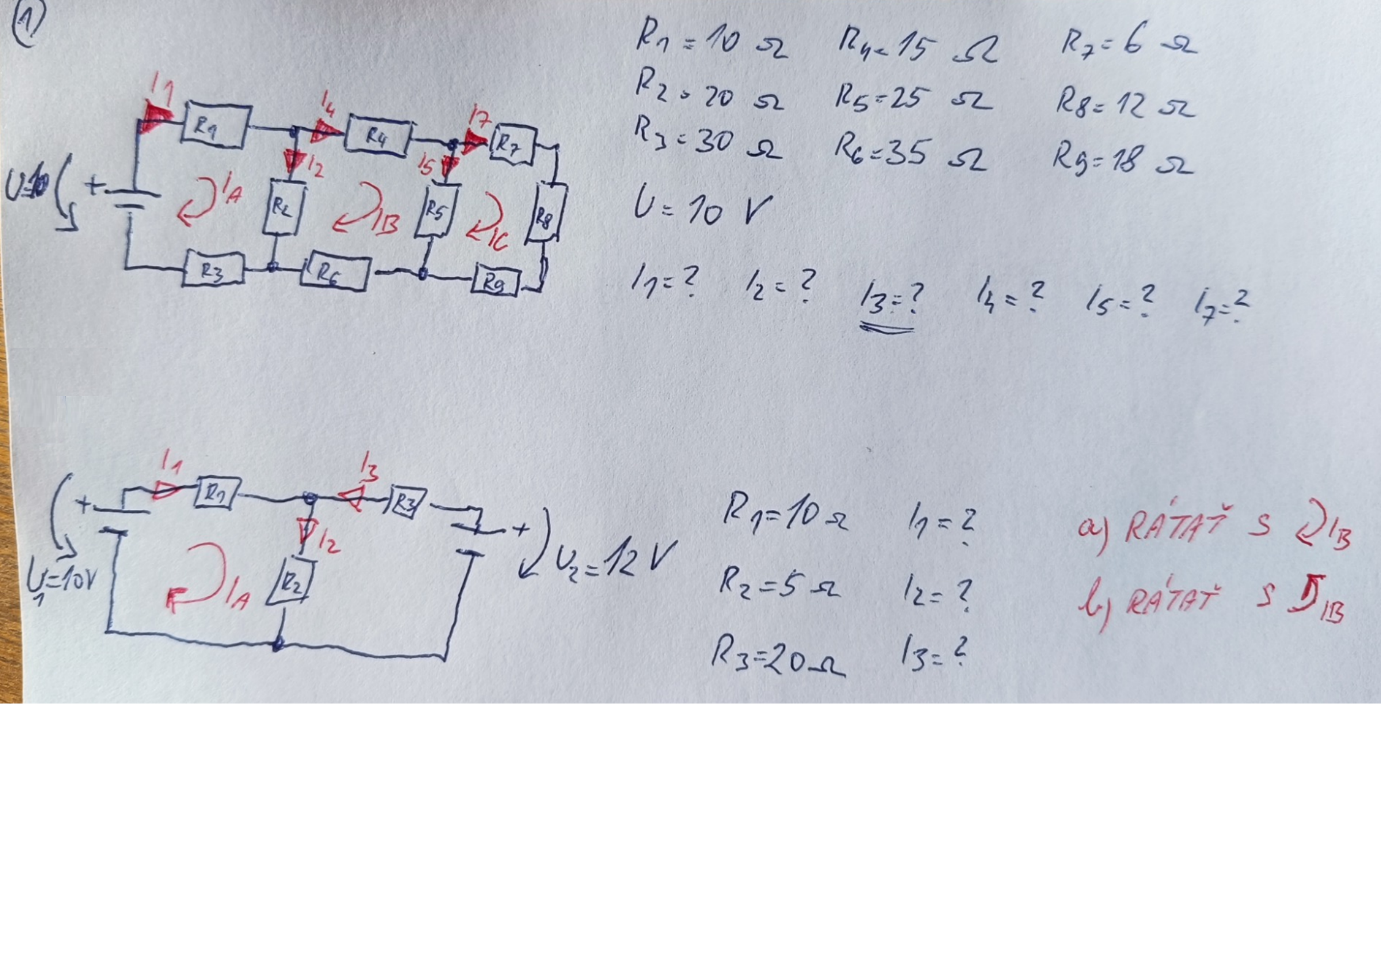 1
I1
R1
I4
R4
I7
R7
I2
I5
U=10
+
IA
R2
IB
R5
IC
R8
R3
R6
R9
R1=10 Ω R4=15 Ω R7=6 Ω
R2=20 Ω R5=25 Ω R8=12 Ω
R3=30 Ω R6=35 Ω R9=18 Ω
U=10 V
I1=? I2=? I3=? I4=? I5=? I7=?
I1
R1
I3
R3
+
I2
+
U1=10V
IA
R2
U2=12V
R1=10Ω I1=?
R2=5Ω I2=?
R3=20Ω I3=?
a) RÁTAŤ S IB
b) RÁTAŤ S IB